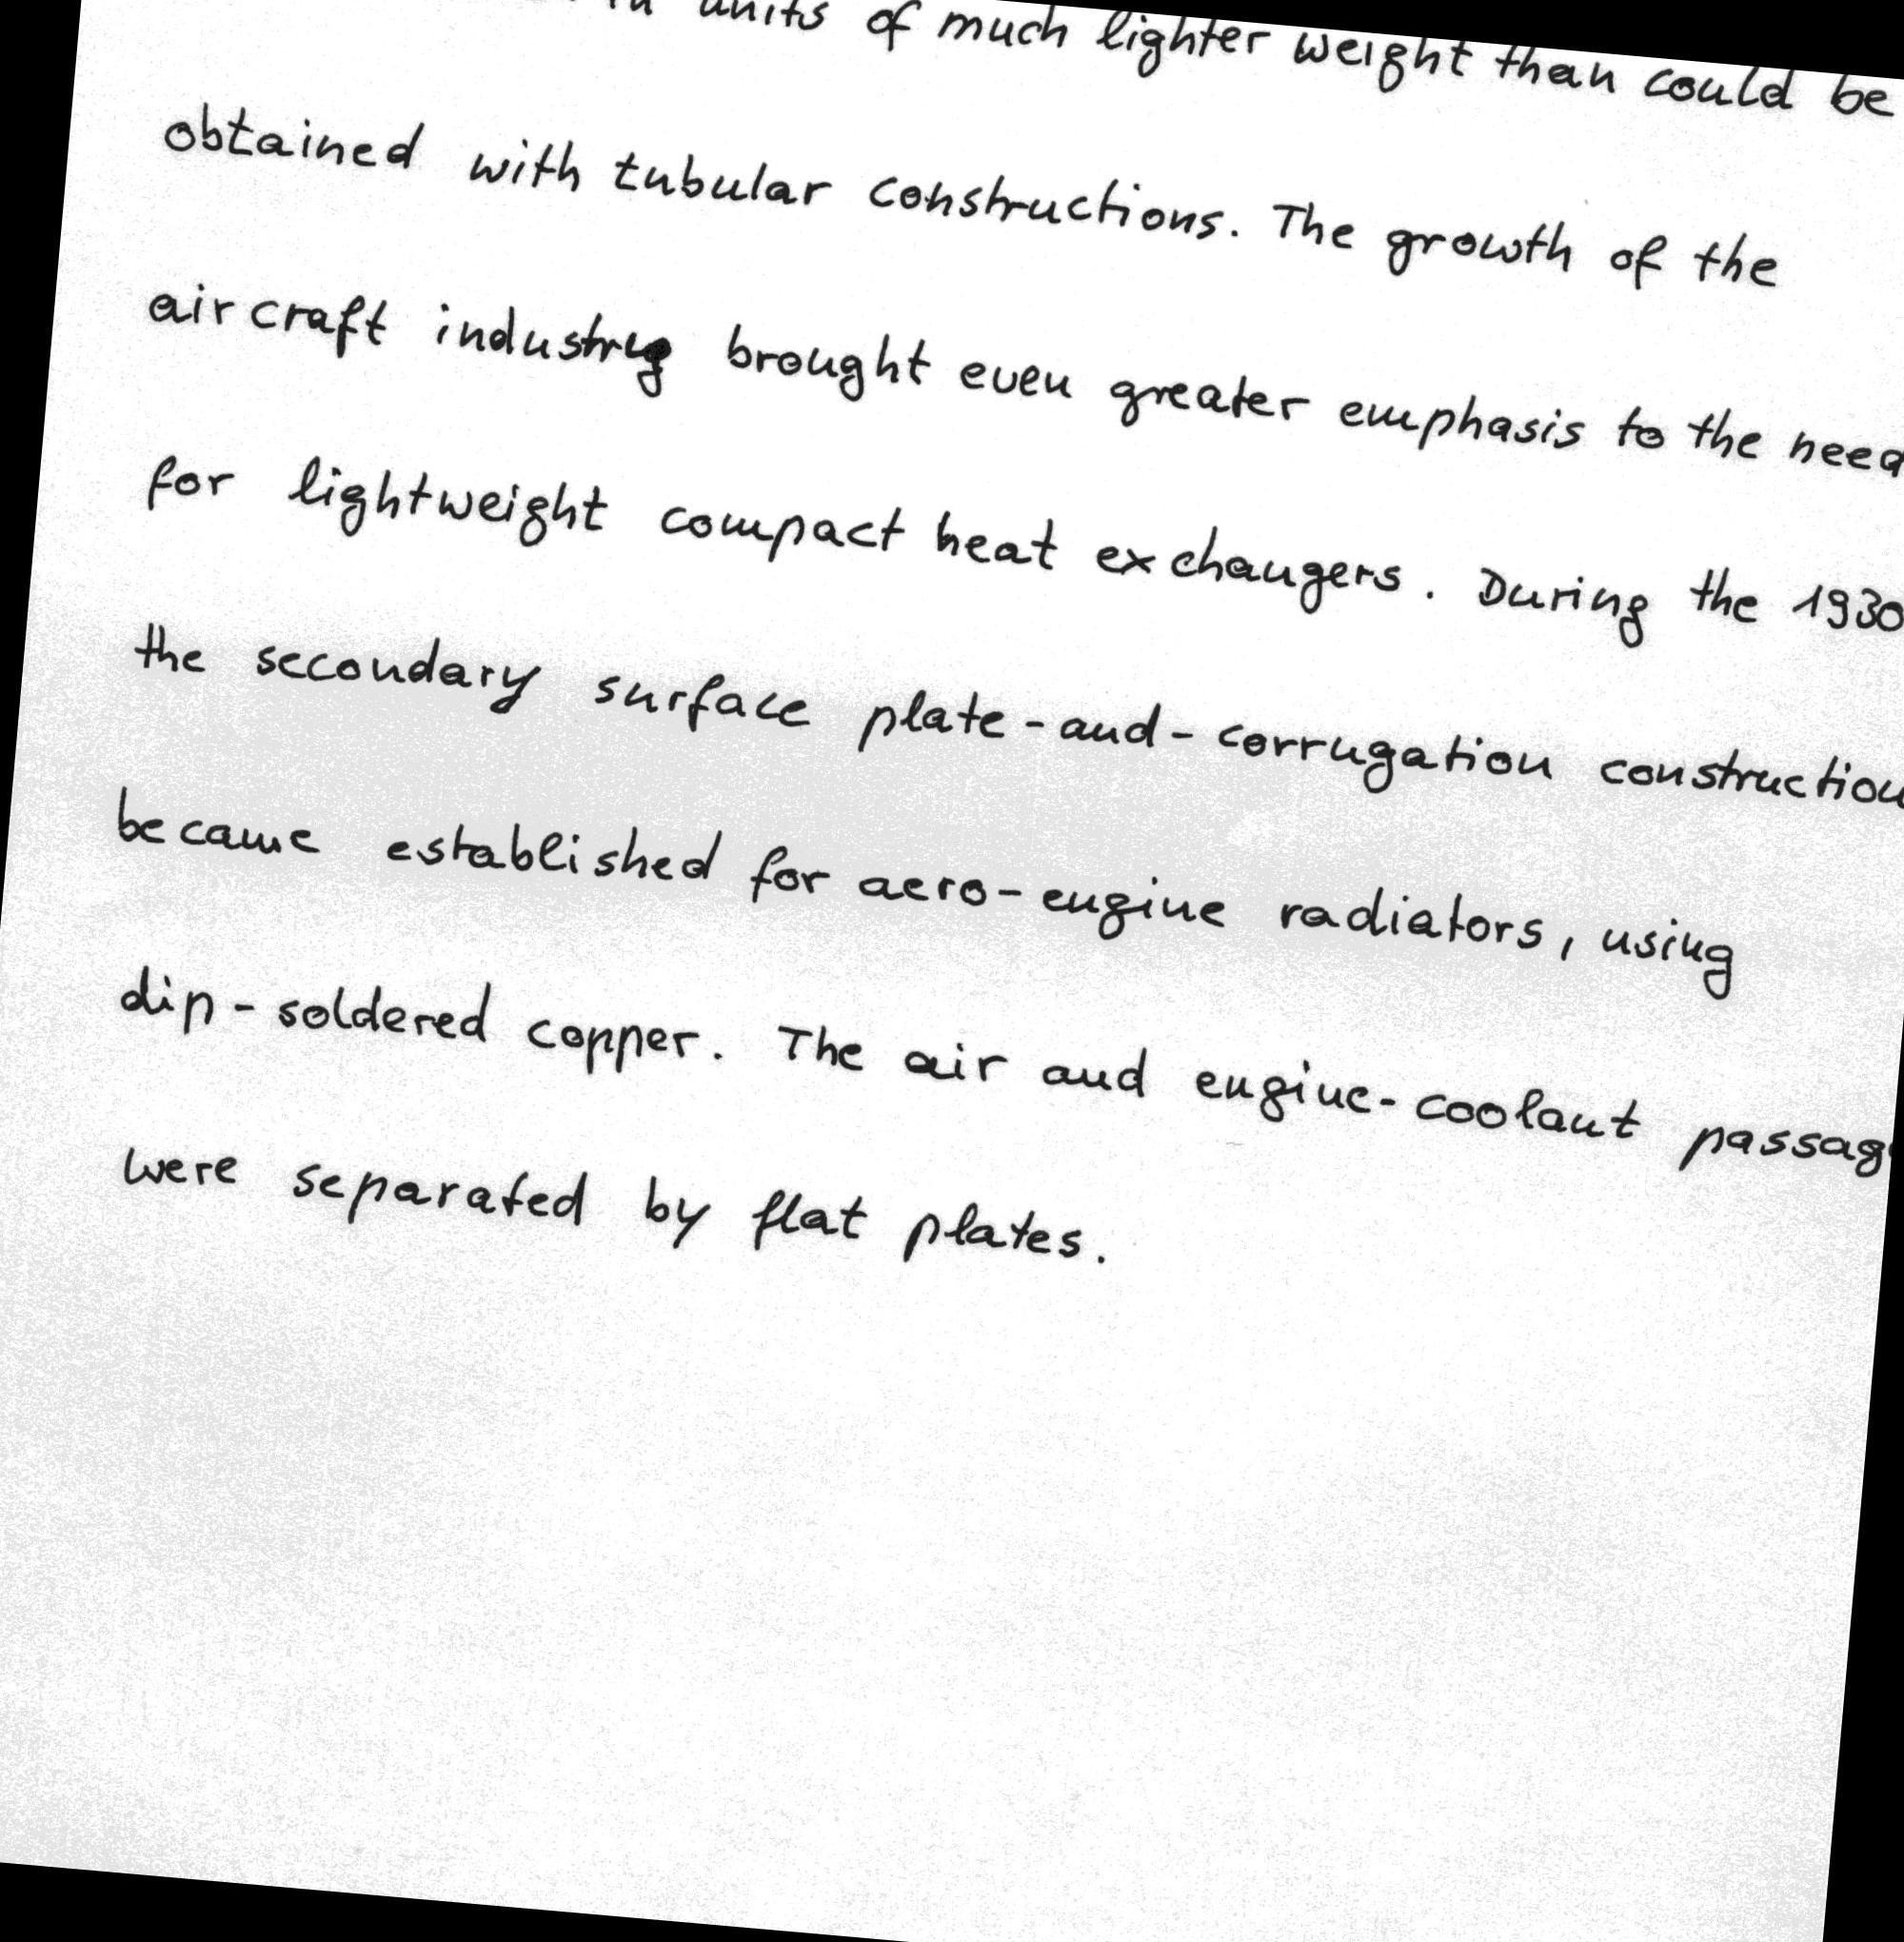 in units of much lighter weight than could be
obtained with tubular constructions. The growth of the
aircraft industry brought even greater emphasis to the need
for lightweight compact heat exchangers. During the 1930
the secondary surface plate-and-corrugation construction
became established for aero-engine radiators, using
dip-soldered copper. The air and engine-coolant
were separated by flat plates.